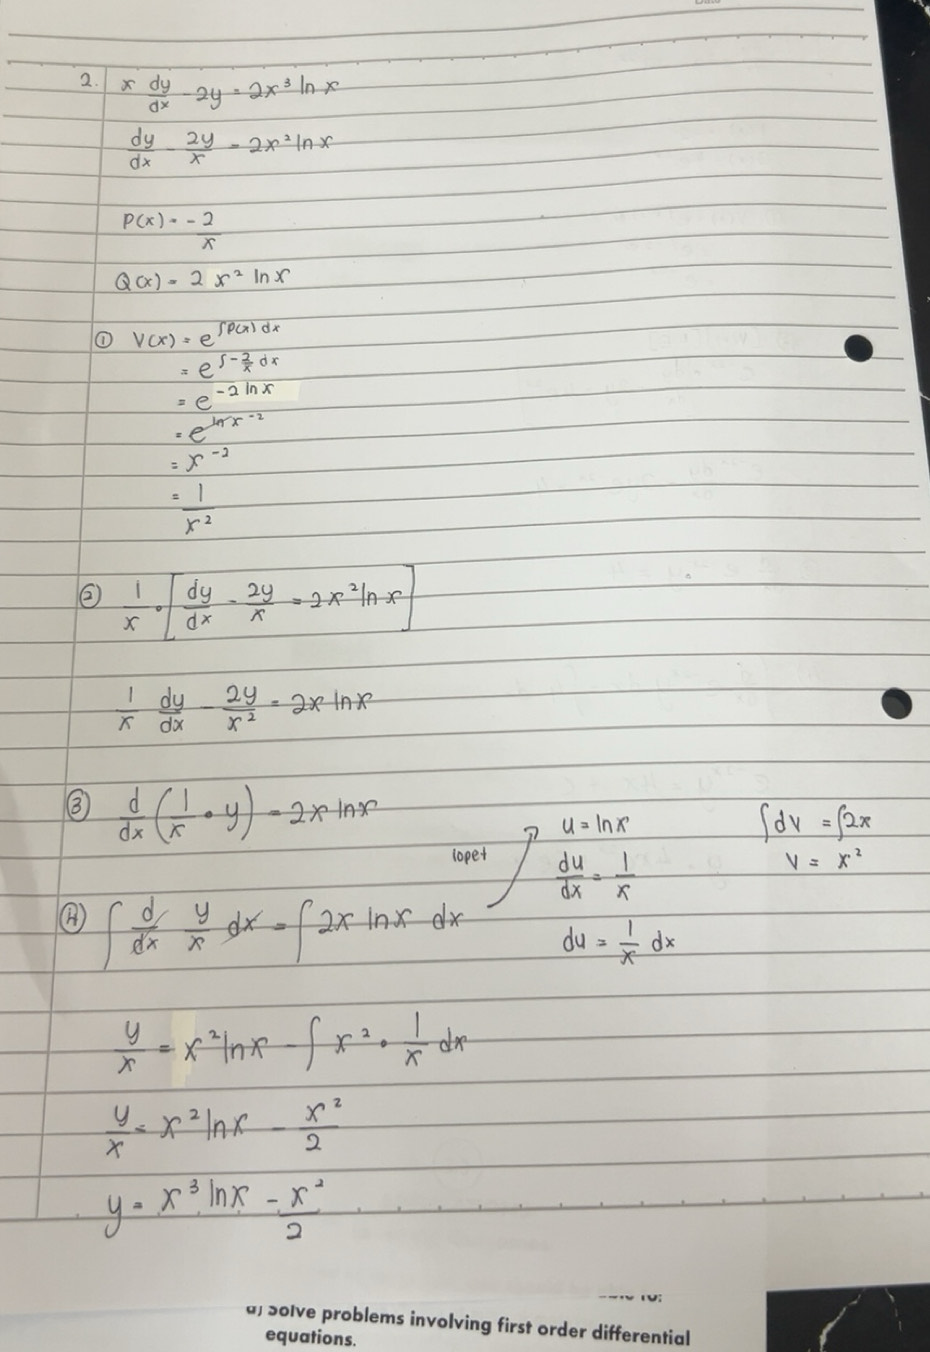 2. x dy/dx - 2y = 2x³ ln x
dy/dx - 2y/x = 2x² ln x
P(x) = -2/x
Q(x) = 2 x² ln x
① V(x) = e^∫P(x) dx
= e^∫-2/x dx
= e^-2 ln x
= e^ln x^-2
= x^-2
= 1/x²
② 1/x · [dy/dx - 2y/x = 2x² ln x]
1/x dy/dx - 2y/x² = 2x ln x
③ d/dx (1/x · y) = 2x ln x
lopet
u = ln x
du/dx = 1/x
du = 1/x dx
∫dv = ∫2x
v = x²
④ ∫ d/dx y/x dx = ∫ 2x ln x dx
y/x = x² ln x - ∫ x² · 1/x dx
y/x = x² ln x - x²/2
y = x³ ln x - x²/2
a) Solve problems involving first order differential
equations.